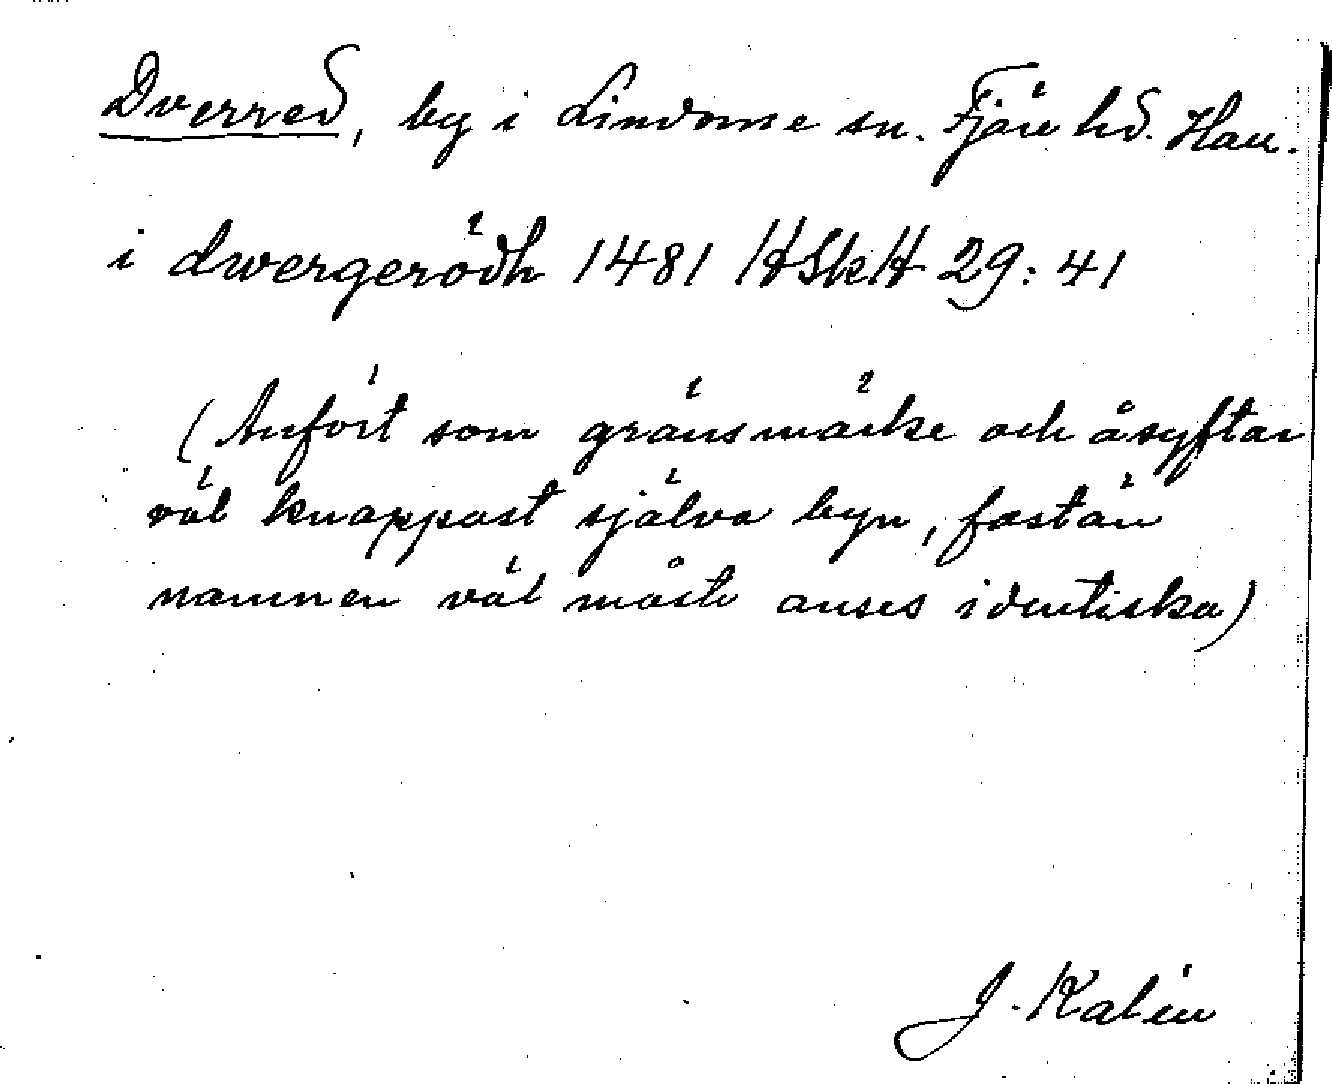 Dverred, by i Lindome sn. Fjäre hd. Hall.
i dwergerödh 1481 HSkH 29:41
(Anfört som gränsmärke och åsyftar
väl knappast själva byn, fastän
namnen väl måste anses identiska)
J. Kalén